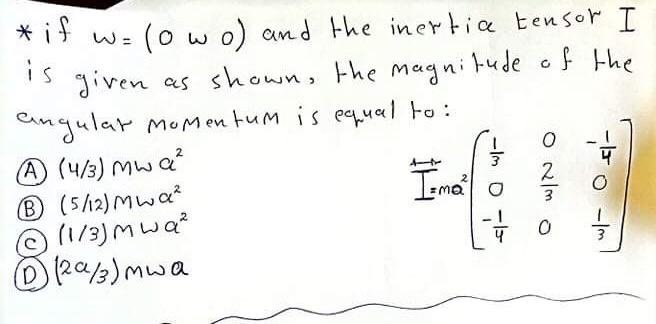 * if w = (0 w 0) and the inertia tensor I
is given as shown, the magnitude of the
angular momentum is equal to:
(A) (4/3) mwa²
(B) (5/12) mwa²
(C) (1/3) mwa²
(D) (2a/3) mwa
I = ma² [ 1/3 0 -1/4
0 2/3 0
-1/4 0 1/3 ]